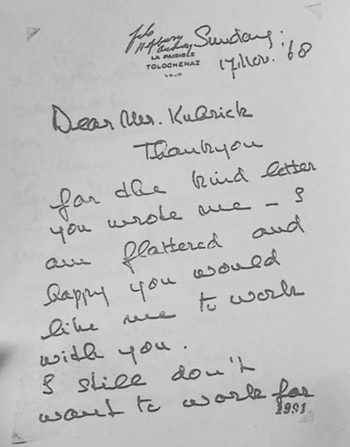 Audrey Sunday.
LA PAISIBLE
TOLOCHENAZ
VAUD
17 Nov. '68
Dear Mr. Kubrick
Thankyou
for the kind letter
you wrote me – I
am flattered and
happy you would
like me to work
with you.
I still don't
want to work for
1991